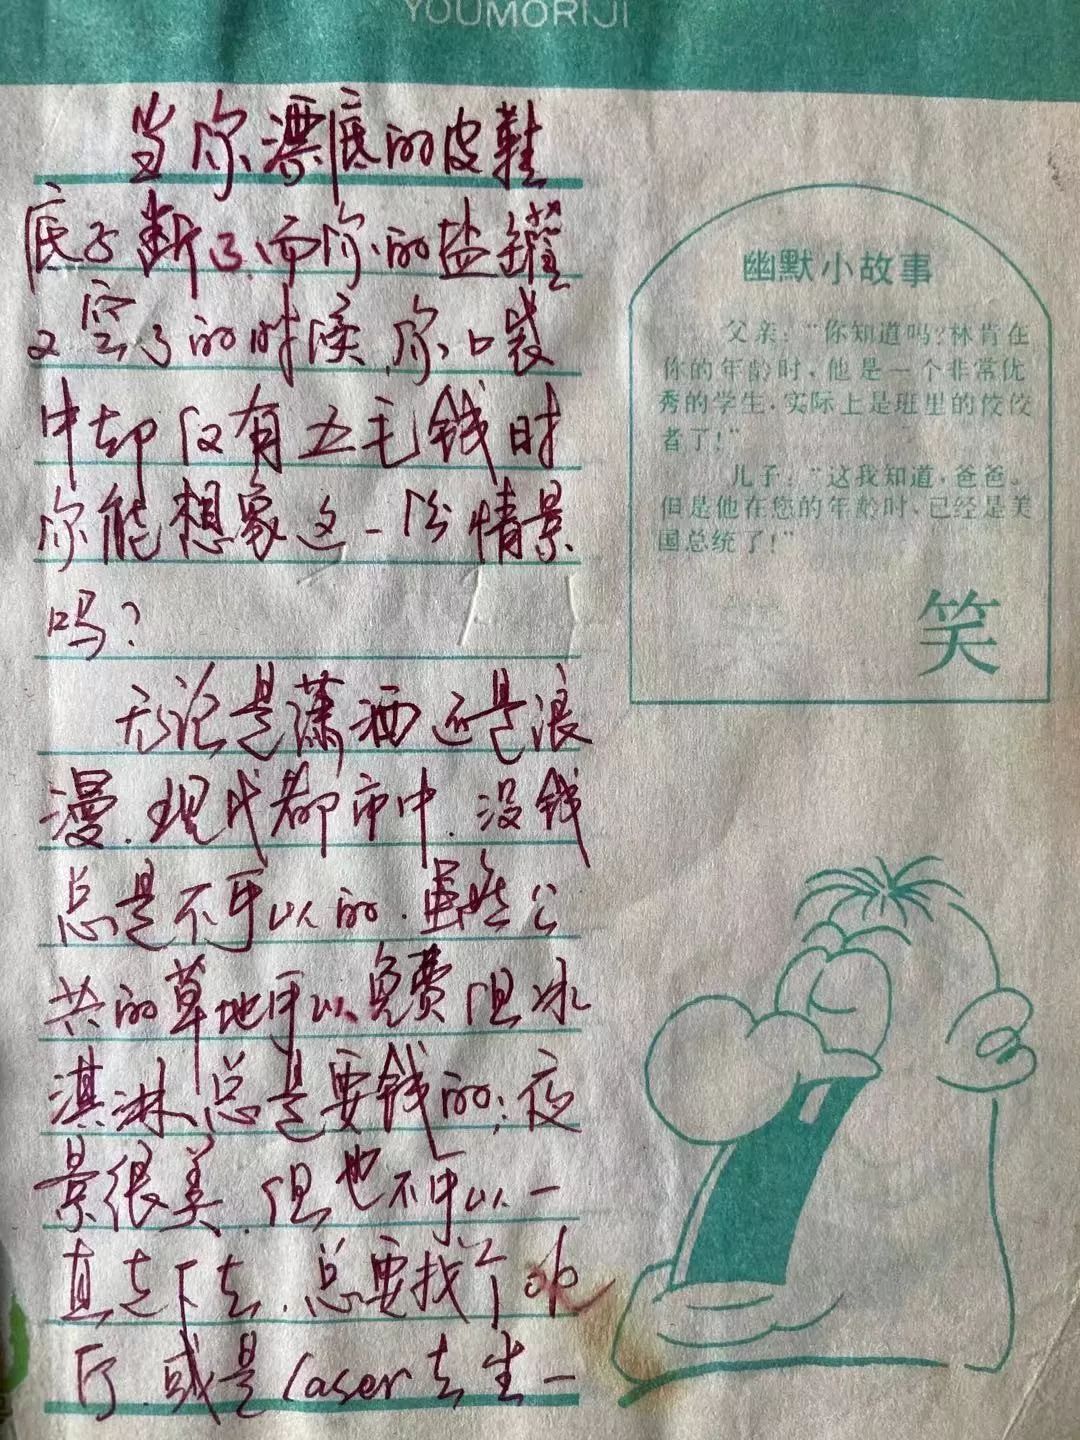 YOUMORIJI
当你漂底的皮鞋
底子断了，而你的盐罐
又空了的时候，你口袋
中却仅有五毛钱时
你能想象这一份情景
吗？
无论是潇洒还是浪
漫，现代都市中，没钱
总是不可以的，虽然公
共的草地可以免费但冰
淇淋总是要钱的；夜
景很美，但也不可以一
直走下去，总要找个
厅，或是Laser去坐一
幽默小故事
父亲：“你知道吗？林肯在
你的年龄时，他是一个非常优
秀的学生，实际上是班里的佼佼
者了！”
儿子：“这我知道，爸爸。
但是他在您的年龄时，已经是美
国总统了！”
笑